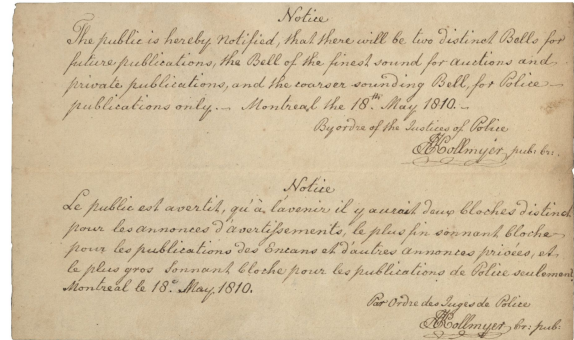 Notice
The public is hereby Notified, that there will be two distinct Bells for
future publications, the Bell of the finest sound for auctions and
private publications, and the coarser sounding Bell, for Police
publications only. — Montreal the 18th May 1810. —
By ordre of the Justices of Police
Hollmyer, pub: br:
Notice
Le public est avertit, qu'à l'avenir il y aurait deux Cloches distinct
pour les annonces d'avertissements, le plus fin sonnant Cloche
pour les publications des Encans et d'autres annonces privees, et
le plus gros Sonnant Cloche pour les publications de Police seulement
Montreal le 18e May, 1810.
Par Ordre des Juges de Police
Hollmyer br: pub: